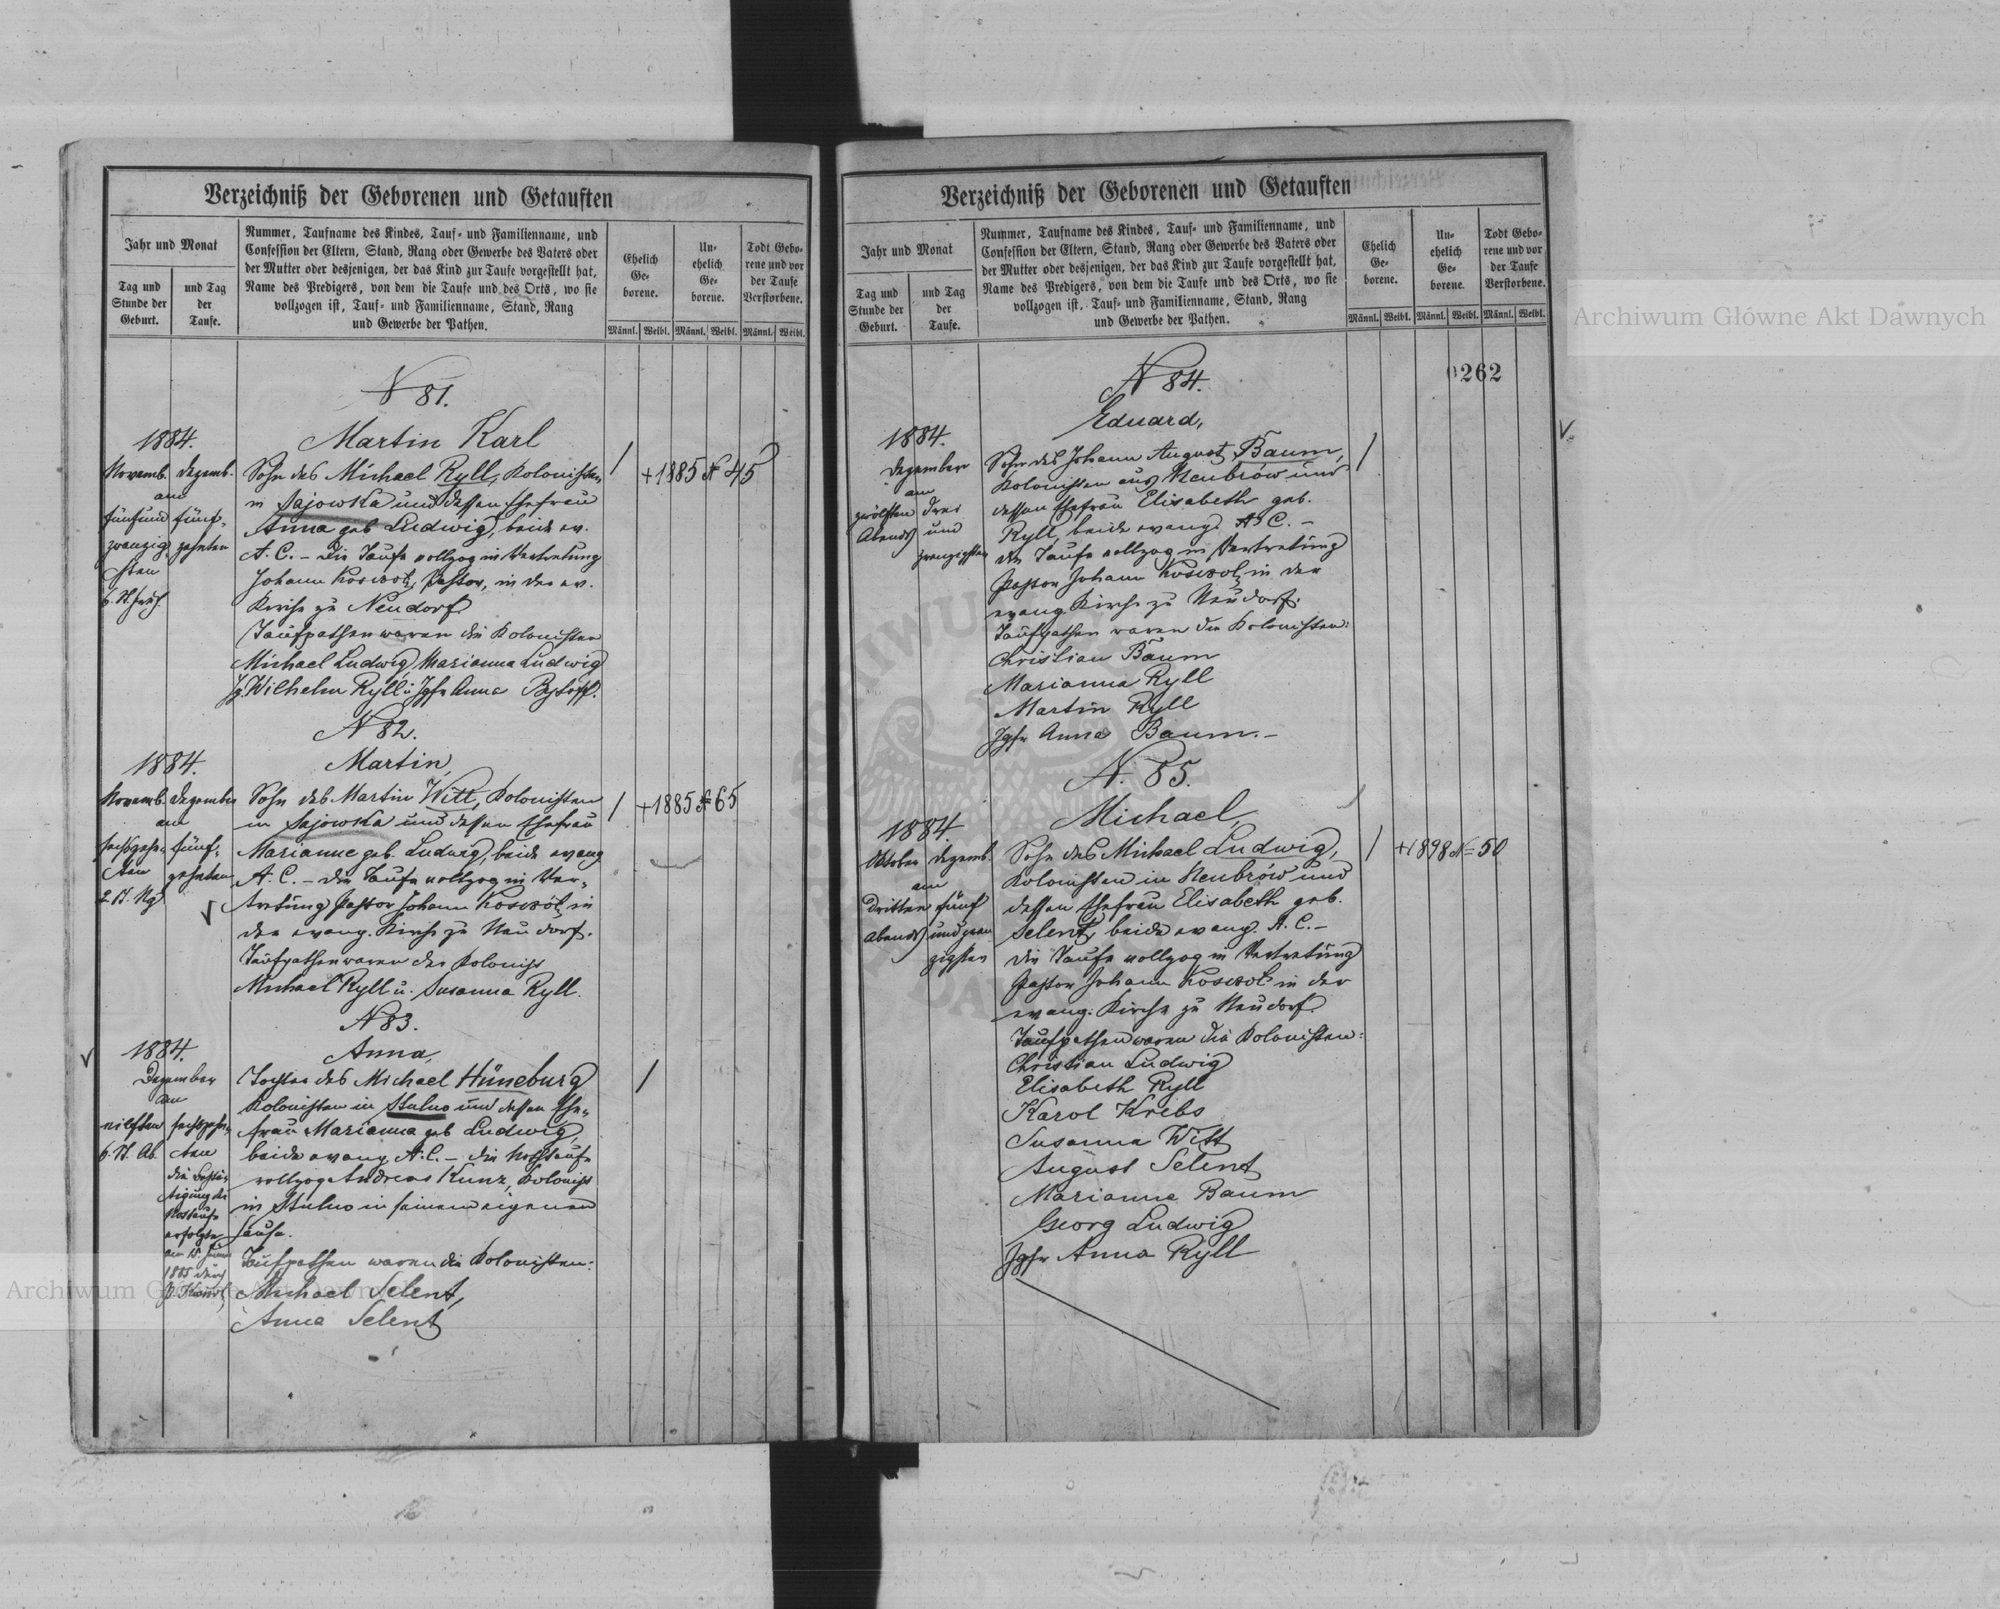 Verzeichniß der Geborenen und Getauften
Jahr und Monat
Tag und Stunde der Geburt.
und Tag der Taufe.
Nummer, Taufname des Kindes, Tauf- und Familienname, und
Confession der Eltern, Stand, Rang oder Gewerbe des Vaters oder
der Mutter oder desjenigen, der das Kind zur Taufe vorgestellt hat,
Name des Predigers, von dem die Taufe und des Orts, wo sie
vollzogen ist, Tauf- und Familienname, Stand, Rang
und Gewerbe der Pathen.
Ehelich Ge- borene.
Un- ehelich Ge- borene.
Todt Gebo- rene und vor der Taufe Verstorbene.
Männl. Weibl. Männl. Weibl. Männl. Weibl.
N 81.
1884.
Martin Karl
Novemb. Dezemb.
am
fünfund fünf-
zwanzig zehnten
sten
6. U. früh.
Sohn des Michael Ryll, Kolonisten
in Sajowka und dessen Ehefrau
Anna geb Ludwig, beide ev.
A. C. – Die Taufe vollzog in Vertretung
Johann Koswol, Pastor, in der ev.
Kirche zu Neudorf
Taufpathen waren die Kolonisten
Michael Ludwig, Marianna Ludwig
Jg. Wilhelm Ryll u Jgfr Anna
/ +1885 N 45
N 82.
1884.
Martin,
Novemb. Dezember
am
sechszehn- fünf-
ten zehnten
2 U. Ng
Sohn des Martin Witt, Kolonisten
in Sajowka und dessen Ehefrau
Marianne geb. Ludwig, beide evang
A. C. – Die Taufe vollzog in Ver-
tretung Pastor Johann Koswol, in
der evang. Kirche zu Neudorf.
Taufpathen waren der Kolonist
Michael Ryll u. Susanna Ryll.
/ +1885 N 65
N 83.
1884.
Anna,
Dezember
am
eilften sechszehn-
6. U. Ab. ten
die Bestä-
tigung der
Nottaufe
erfolgte
1885 durch
Tochter des Michael Hüneburg
Kolonisten in Stulno und dessen Ehe-
frau Marianna geb Ludwig,
beide evang. A. C. – die Nothtaufe
vollzog Andreas Kunz, Kolonist
in Stulno in seinem eigenen
Hause.
Taufpathen waren die Kolonisten:
Michael Selent,
Anna Selent
/
Verzeichniß der Geborenen und Getauften
Jahr und Monat
Tag und Stunde der Geburt.
und Tag der Taufe.
Nummer, Taufname des Kindes, Tauf- und Familienname, und
Confession der Eltern, Stand, Rang oder Gewerbe des Vaters oder
der Mutter oder desjenigen, der das Kind zur Taufe vorgestellt hat,
Name des Predigers, von dem die Taufe und des Orts, wo sie
vollzogen ist, Tauf- und Familienname, Stand, Rang
und Gewerbe der Pathen.
Ehelich Ge- borene.
Un- ehelich Ge- borene.
Todt Gebo- rene und vor der Taufe Verstorbene.
Männl. Weibl. Männl. Weibl. Männl. Weibl.
0262
N 84.
1884.
Eduard,
Dezember
am
zwölften drei
Abends und
zwanzigsten
Sohn des Johann August Baum,
Kolonisten aus Neubrów und
dessen Ehefrau Elisabeth geb.
Ryll, beide evang. A. C. –
die Taufe vollzog in Vertretung
Pastor Johann Koswol, in der
evang Kirche zu Neudorf.
Taufpathen waren die Kolonisten:
Christian Baum
Marianna Ryll
Martin Ryll
Jgfr Anna Baum. –
/
N. 85.
1884
Michael,
Oktober Dezemb.
am
dritten fünf
Abends und zwan
zigsten
Sohn des Michael Ludwig,
Kolonisten in Neubrów und
dessen Ehefrau Elisabeth geb.
Selent, beide evang. A. C. –
Die Taufe vollzog in Vertretung
Pastor Johann Koswol in der
evang. Kirche zu Neudorf
Taufpathen waren die Kolonisten:
Christian Ludwig
Elisabeth Ryll
Karol Krebs
Susanna Witt
August Selent
Marianne Baum
Georg Ludwig
Jgfr Anna Ryll
/ +1898 N= 50
Archiwum Główne Akt Dawnych
Archiwum Główne Akt Dawnych